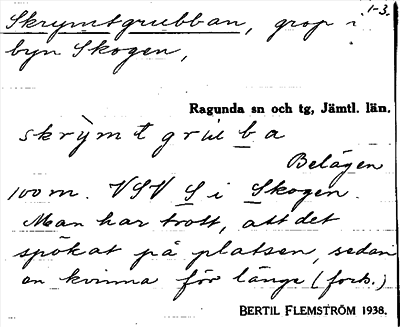 Skrymtgrubban, grop i 1-3.
byn Skogen,
Ragunda sn och tg, Jämtl. län.
skrỳmtgruba
Belägen
100 m. VSV S i Skogen.
Man har trott, att det
spökat på platsen, sedan
en kvinna för länge (forts.)
BERTIL FLEMSTRÖM 1938.